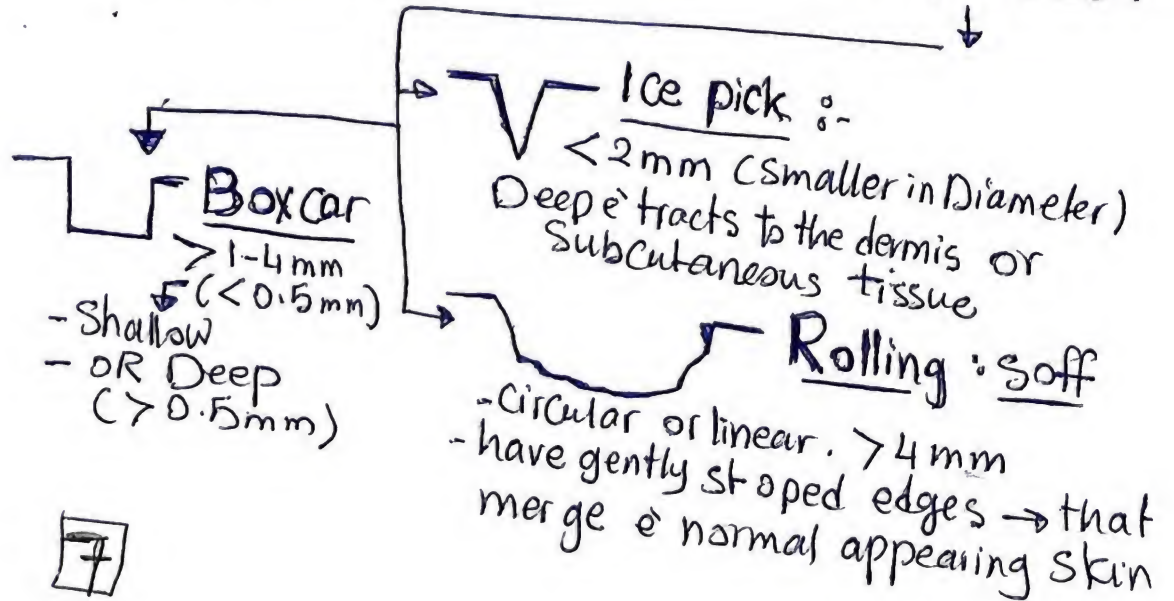 Ice pick :-
< 2mm (smaller in Diameter)
Deep è tracts to the dermis or
Subcutaneous tissue
Boxcar
> 1-4mm
(<0.5mm)
- Shallow
- OR Deep
(> 0.5mm)
Rolling : Soff
- Circular or linear. > 4mm
- have gently stoped edges → that
merge è normal appearing skin
7